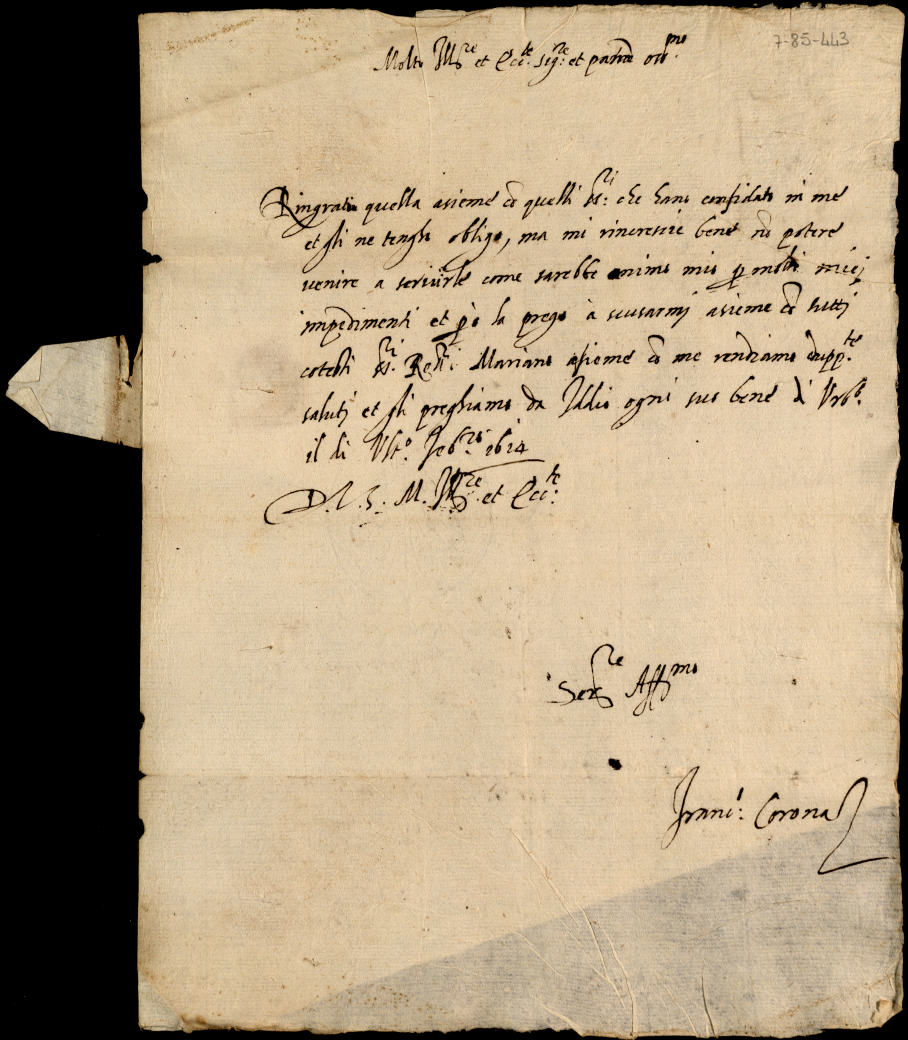 7-85-443
Molto Ill.re et Ecc.te Sig.re et padrõ oss.mo
Ringratio quella asieme cõ quelli SS.ri che hano confidato in me
et gli ne tengho obligo, ma mi rincresce bene nõ potere
venire a servirle come sarebbe animo mio p molti miei
impedimenti et pò la prego à scusarmi asieme cõ tutti
cotesti SS.ri Mariano asieme cõ me rendiamo dupp.te
saluti et gli preghiamo da Iddio ogni suo bene d Urb.o
il di Ult.o Feb.ro 1614
D. V. S. M. Ill.re et Ecc.te
Ser.re Aff.mo
Franc.o Corona